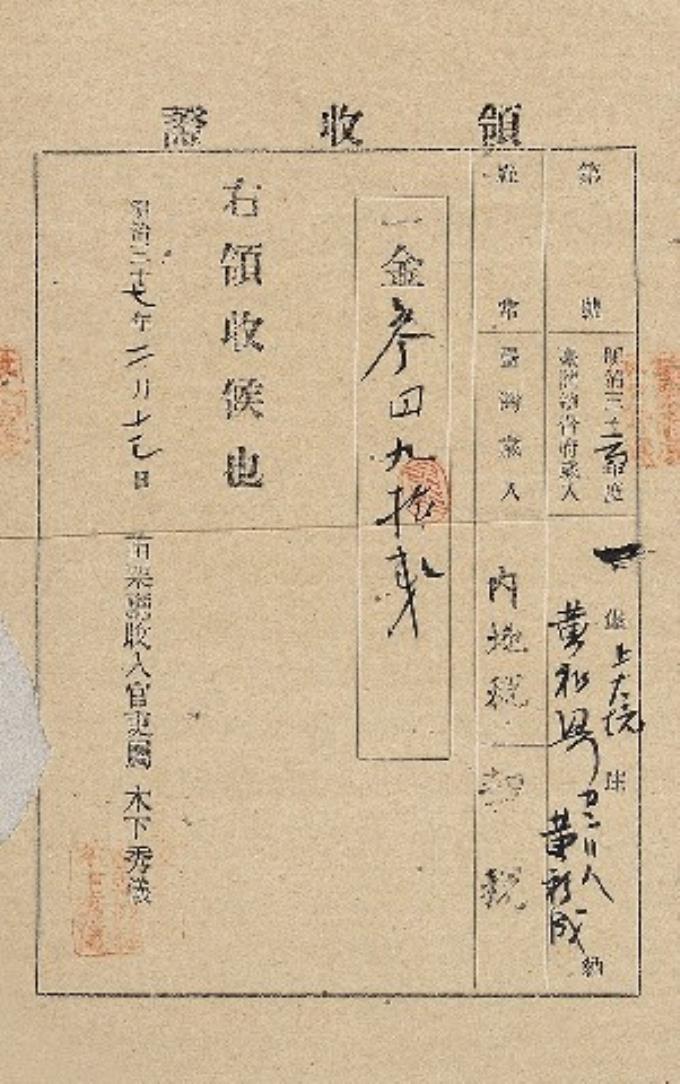 領收證
第 號
明治三十六年度
臺灣總督府歲入
一堡上大坑庄
黃和興
外二十八人
黃新成 納
經常
臺灣歲入
內地稅 契稅
一金參円九拾錢
右領收候也
明治三十七年二月十七日
苗栗廳收入官吏屬 木下秀儀